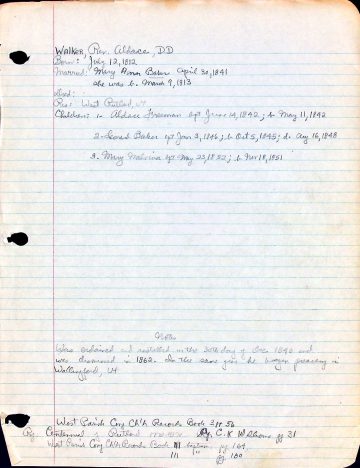 WALKER, Rev. Aldace, DD
Born: July 12, 1812
Married: Mary Ann Baker April 30, 1841
she was b. March 9, 1813
Died:
Res: West Rutland, VT
Children: 1. Aldace Freeman bpt June 14, 1842; b. May 11, 1842
2. Leonard Baker bpt Jan 3, 1846; b. Oct 5, 1845; d. Aug 16, 1848
3. Mary Malvina bpt May 23, 1852; b. Nov 18, 1851
Notes
Was ordained and installed on the 30th day of Dec. 1840 and
was dismissed in 1862. In the same year he began preaching in
Wallingford, VT
West Parish Cong Ch'h Records Book
Centennial Rutland by C. K. Williams pg 31
West Parish Cong Ch'h Records Book III pg 164
III pg 180